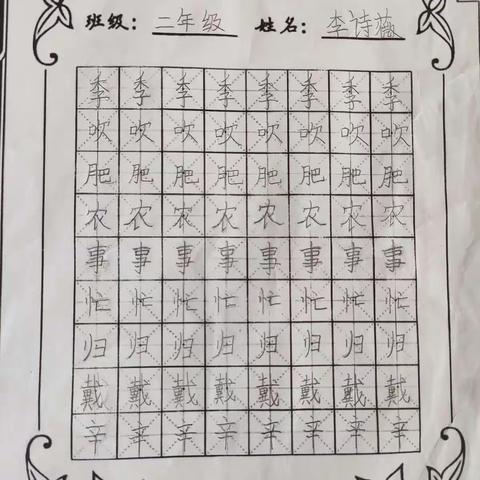 班级：二年级 姓名：李诗薇
季季季季季季季季
吹吹吹吹吹吹吹吹
肥肥肥肥肥肥肥肥
农农农农农农农农
事事事事事事事事
忙忙忙忙忙忙忙忙
归归归归归归归归
戴戴戴戴戴戴戴戴
辛辛辛辛辛辛辛辛